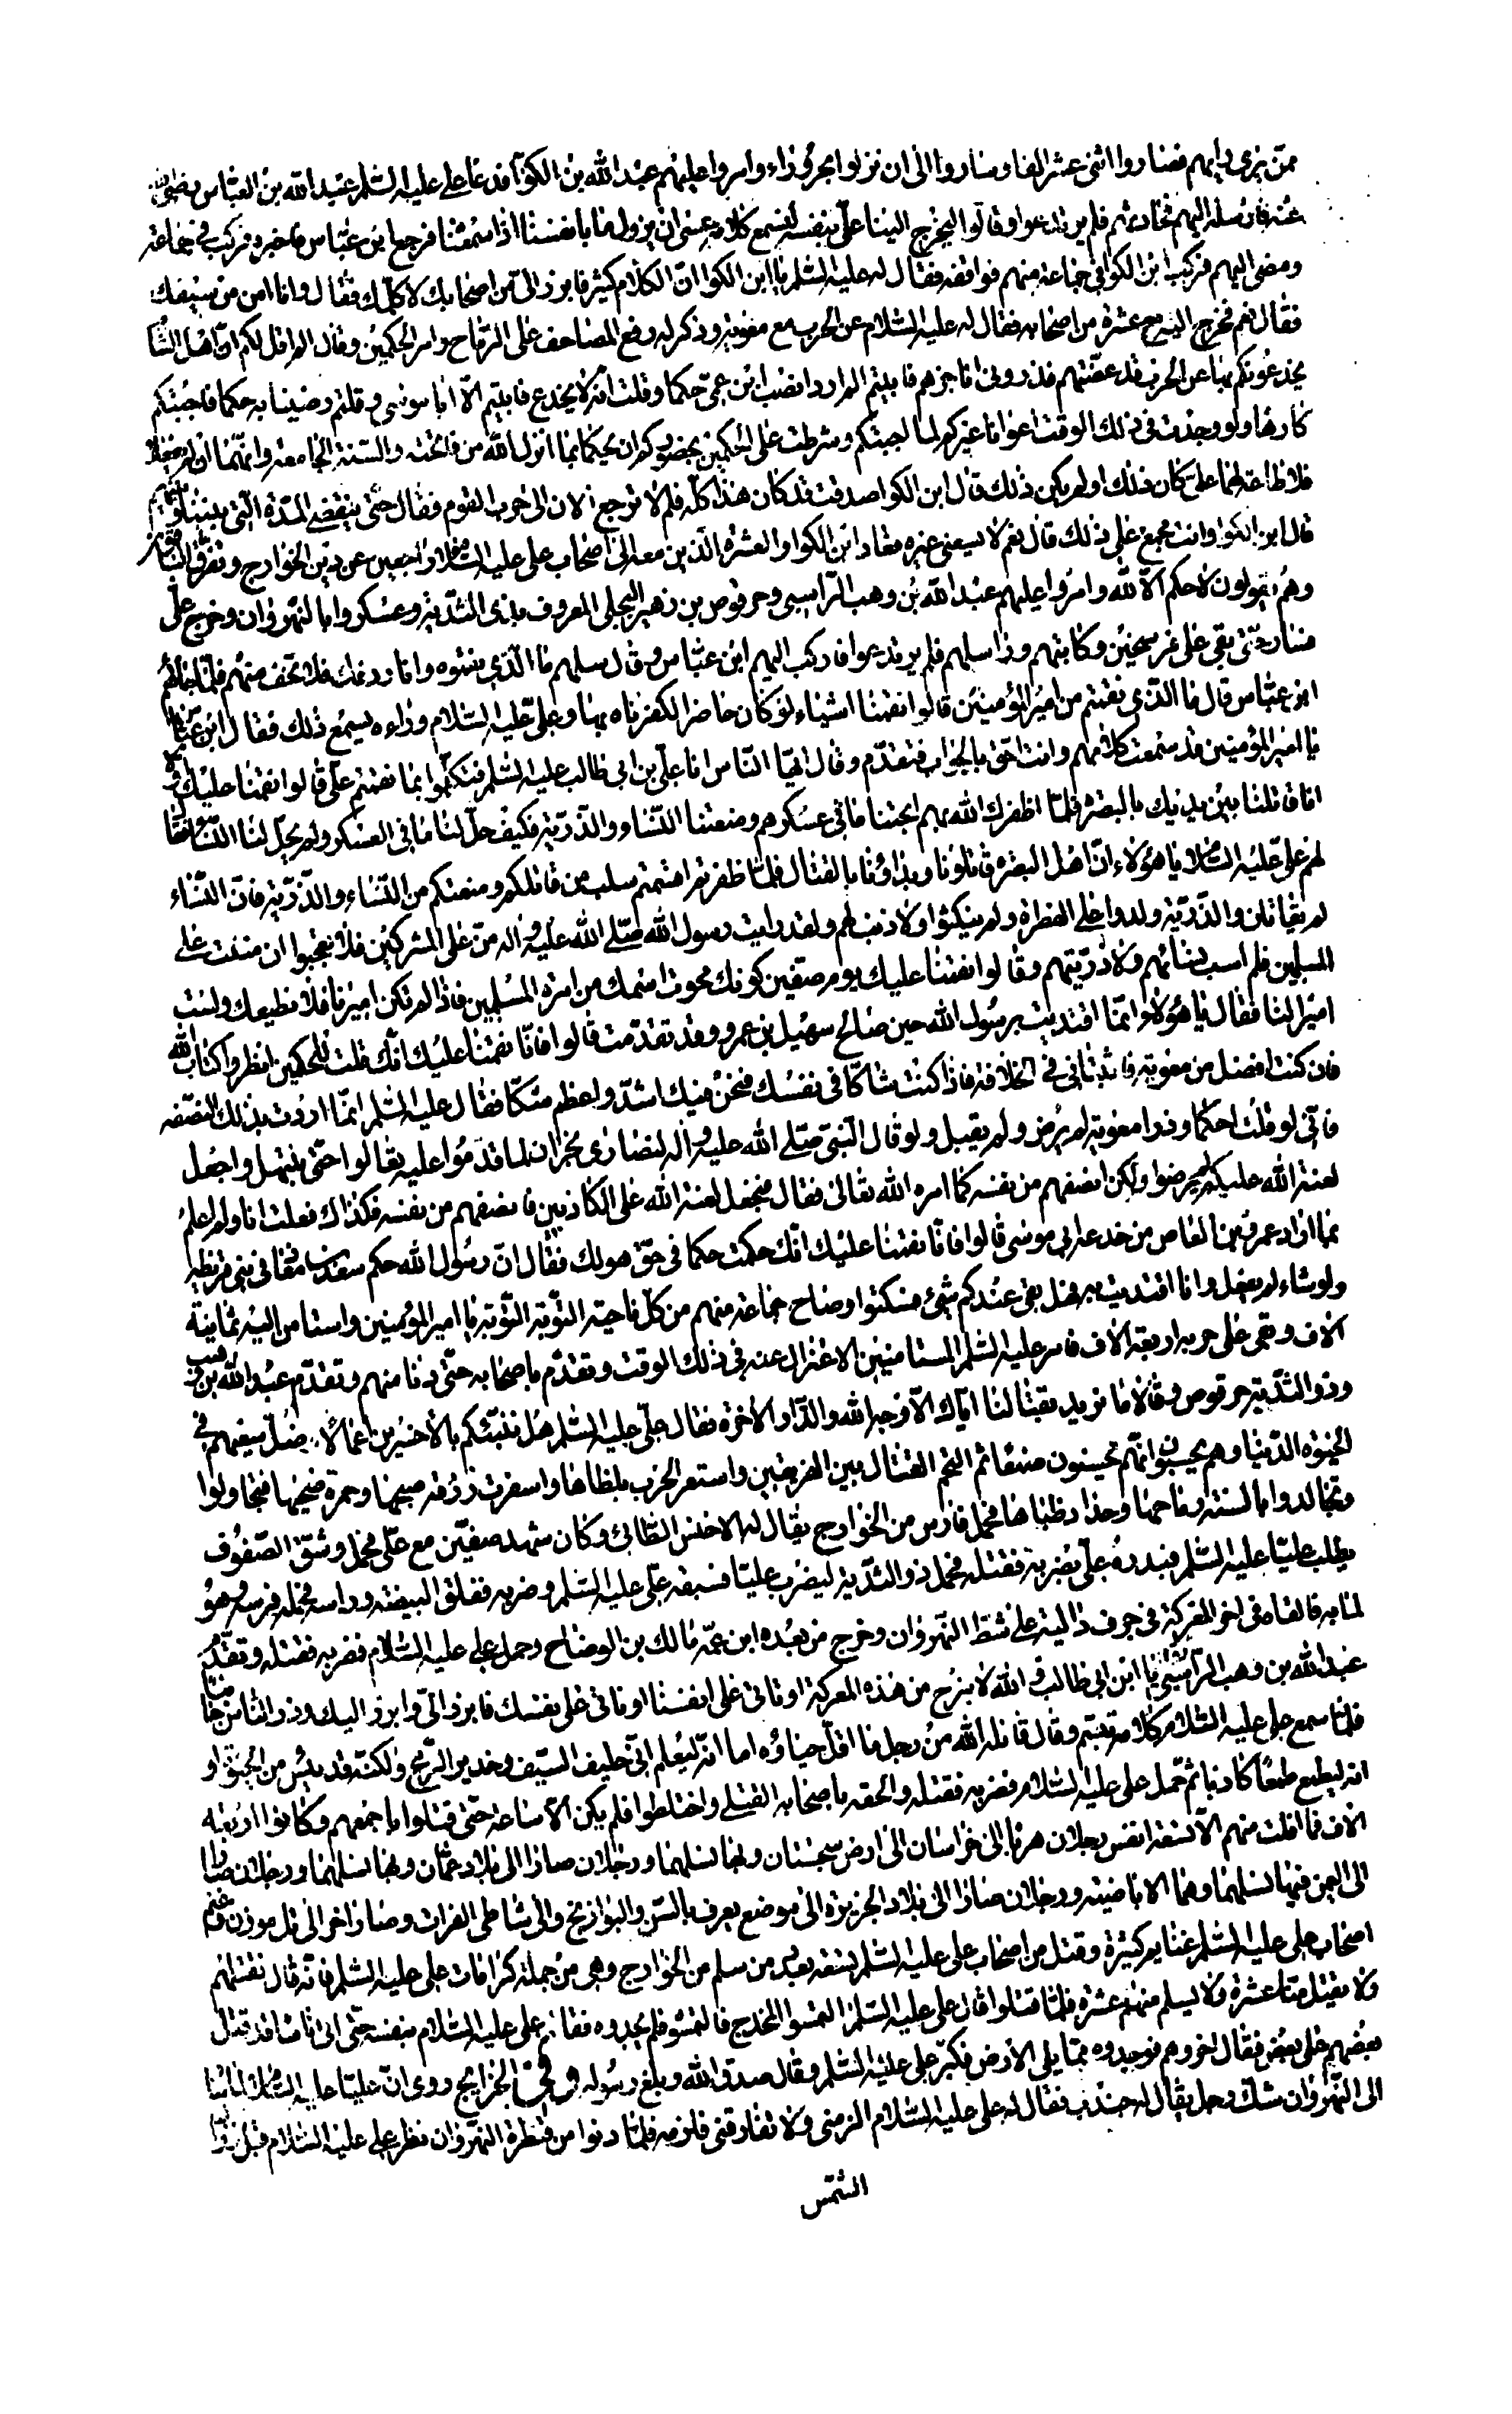 ممن يرى رايهم فصاروا اثنى عشر الفا وساروا الى ان نزلوا بحروراء وامروا عليهم عبد الله بن الكوا فدعا على عليه السلم عبد الله بن العباس رضى الله
عنه فارسله اليهم فحادثهم فلم يرتدعوا وقالوا ليخرج الينا على بنفسه لنسمع كلامه عسى ان يزول ما بانفسنا اذا سمعنا فرجع ابن عباس فاخبره فركب فى جماعة
ومضى اليهم فركب ابن الكوا فى جماعة منهم فواقفه فقال له عليه السلم يا ابن الكوا ان الكلام كثير فابرز الى من اصحابك لاكلمك فقال وانا امن من سيفك
فقال نعم فخرج اليه فى عشرة من اصحابه فقال له عليه السلام عن الحرب مع معوية وذكر له رفع المصاحف على الرماح وامر الحكمين وقال الم اقل لكم ان اهل الشا
يخدعونكم بها عن الحرب قد عضتهم فذرونى اناجزهم فابيتم الم ارد انصب ابن عمى حكما وقلت انه لا يخدع فابيتم الا ابا موسى وقلتم رضينا به حكما فاجبتكم
كارها ولو وجدت فى ذلك الوقت اعوانا غيركم لما اجبتكم وشرطت على الحكمين بحضوركم ان يحكما بما انزل الله من فاتحته والسنة الجامعة وانهما ان لم يفعلا
فلا طاعة لهما على كان ذلك او لم يكن ذلك قال ابن الكوا صدقت قد كان هذا كله فلم لا ترجع الان الى حرب القوم فقال حتى ينقضى المدة التى بيننا وبينهم
قال ابن الكوا وانت مجمع على ذلك قال نعم لا يسعنى غيره فعاد ابن الكوا والعشرة الذين معه الى اصحاب على عليه السلام راجعين عن دين الخوارج وتفرق الباقون
وهم يقولون لا حكم الا لله وامروا عليهم عبد الله بن وهب الراسبى وحرقوص بن زهير البجلى المعروف بذى الثدية وعسكروا بالنهروان وخرج على
فسار حتى بقى على فرسخين وكاتبهم وراسلهم فلم يرتدعوا فاركب اليهم ابن عباس وقال سلهم ما الذى نقموه وانا ردفك فلا تخف منهم فلما جائهم
ابن عباس قال ما الذى نقمتم من امير المؤمنين قالوا نقمنا اشياء لو كان حاضرا لكفرناه بها وعلى عليه السلام وراءه يسمع ذلك فقال ابن عباس
يا امير المؤمنين قد سمعت كلامهم وانت احق بالجواب فتقدم وقال ايها الناس انا على بن ابى طالب عليه السلم فتكلموا بما نقمتم على قالوا نقمنا عليك اولا
انا قاتلنا بين يديك بالبصرة فلما اظفرك الله بهم ابحتنا ما فى عسكرهم ومنعتنا النساء والذرية فكيف حل لنا ما فى العسكر ولم يحل لنا النساء فقال
لهم على عليه السلام يا هؤلاء ان اهل البصرة قاتلونا وبداونا بالقتال فلما ظفرتم اقتسمتم سلب من قاتلكم ومنعتكم من النساء والذرية فان النساء
لم يقاتلن والذرية ولدوا على الفطرة ولم ينكثوا ولا ذنب لهم ولقد رايت رسول الله صلى الله عليه واله من على المشركين فلا تعجبوا ان مننت على
المسلمين فلم اسب نسائهم ولا ذريتهم وقالوا نقمنا عليك يوم صفين كونك محوت اسمك من امرة المسلمين فاذا لم تكن اميرنا فلا نطيعك ولست
اميرا لنا فقال يا هؤلاء انما اقتديت برسول الله حين صالح سهيل بن عمرو وقد تقدمت قالوا فانا نقمنا عليك انك قلت للحكمين انظروا كتاب الله
فان كنت افضل من معوية فاثبتانى فى الخلافة فاذا كنت شاكا فى نفسك فنحن فيك اشد واعظم شكا فقال عليه السلم انما اردت بذلك النصفة
فانى لو قلت احكما وذرا معوية لم يرض ولم يقبل ولو قال النبى صلى الله عليه واله لنصارى نجران لما قدموا عليه تعالوا حتى نبتهل واجعل
لعنة الله عليكم لم يرضوا ولكن انصفهم من نفسه كما امره الله تعالى فقال فنجعل لعنة الله على الكاذبين فانصفهم من نفسه فكذلك فعلت انا ولم اعلم
بما اراد عمرو بن العاص من خدعة ابى موسى قالوا فانا نقمنا عليك انك حكمت حكما فى حق هو لك فقال ان رسول الله حكم سعد بن معاذ فى بنى قريظة
ولو شاء لم يفعل وانا اقتديت به فهل بقى عندكم شئ فسكتوا وصاح جماعة منهم من كل ناحية التوبة التوبة يا امير المؤمنين واستامن اليه ثمانية
الاف وبقى على حربه اربعة الاف فامر عليه السلم المستامنين الاعتزال عنه فى ذلك الوقت وتقدم باصحابه حتى دنا منهم وتقدم عبد الله بن وهب
وذو الثدية حرقوص وقالا ما نريد بقتالنا اياك الا وجه الله والدار الاخرة فقال على عليه السلم هل ننبئكم بالاخسرين اعمالا الذين ضل سعيهم فى
الحيوة الدنيا وهم يحسبون انهم يحسنون صنعا ثم التحم القتال بين الفريقين واستعر الحرب بلظاها واسفرت زرقة صبحها وحمرة ضحيها فتجاولوا
وتجالدوا بالسنة رماحها وحداد ظباها فحمل فارس من الخوارج يقال له الاخنس الطائى وكان شهد صفين مع على فحمل وشق الصفوف
يطلب عليا عليه السلم فبدره على بضربة فقتله فحمل ذو الثدية ليضرب عليا فسبقه على عليه السلم وضربه ففلق البيضة وراسه فحمله فرسه وهو
لما به فالقاه فى اخر المعركة فى جرف دالية على شط النهروان وخرج من بعده ابن عمه مالك بن الوضاح وحمل على على عليه السلام فضربه فقتله وتقدم
عبد الله بن وهب الراسبى فصاح يا ابن ابى طالب والله لا نبرح من هذه المعركة او تاتى على انفسنا او ناتى على نفسك فابرز الى وابرز اليك وذر الناس جانبا
فلما سمع على عليه السلام كلامه تبسم وقال قاتله الله من رجل ما اقل حياؤه اما انه ليعلم انى حليف السيف وخدين الرمح ولكنه قد يئس من الحيوة او
انه ليطمع طمعا كاذبا ثم حمل على على عليه السلام فضربه فقتله والحقه باصحابه القتلى واختلطوا فلم يكن الا ساعة حتى قتلوا باجمعهم وكانوا اربعة
الاف فما افلت منهم الا تسعة انفس رجلان هربا الى خراسان الى ارض سجستان وبها نسلهما ورجلان صارا الى بلاد عمان وبها نسلهما ورجلان صارا
الى اليمن فيها نسلهما وهما الاباضية ورجلان صارا الى بلاد الجزيرة الى موضع يعرف بالسن والبوازيج والى شاطئ الفرات وصار اخر الى تل موزن وغنم
اصحاب على عليه السلم غنايم كثيرة وقتل من اصحاب على عليه السلم تسعة بعدد من سلم من الخوارج وهى من جملة كرامات على عليه السلم فانه قال نقتلهم
ولا يقتل منا عشرة ولا يسلم منهم عشرة فلما قتلوا قال على عليه السلم التمسوا المخدج فالتمسوه فلم يجدوه فقام على عليه السلام بنفسه حتى اتى ناسا قد قتل
بعضهم على بعض فقال اخروهم فوجدوه مما يلى الارض فكبر على عليه السلم وقال صدق الله وبلغ رسوله وفى الخرايج روى ان عليا عليه السلام لما سار
الى النهروان شك رجل يقال له جندب فقال له على عليه السلام الزمنى ولا تفارقنى فلزمه فلما دنوا من قنطرة النهروان نظر على عليه السلام قبل زوال
الشمس